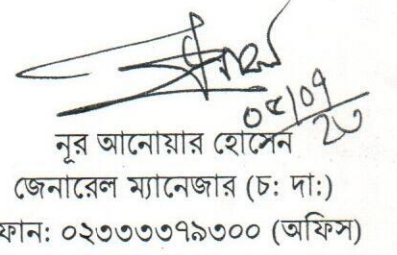 ০৫/০৭
২৩
নূর আনোয়ার হোসেন
জেনারেল ম্যানেজার (চ: দা:)
ফান: ০২৩৩৩৩৭৯৩০০ (অফিস)